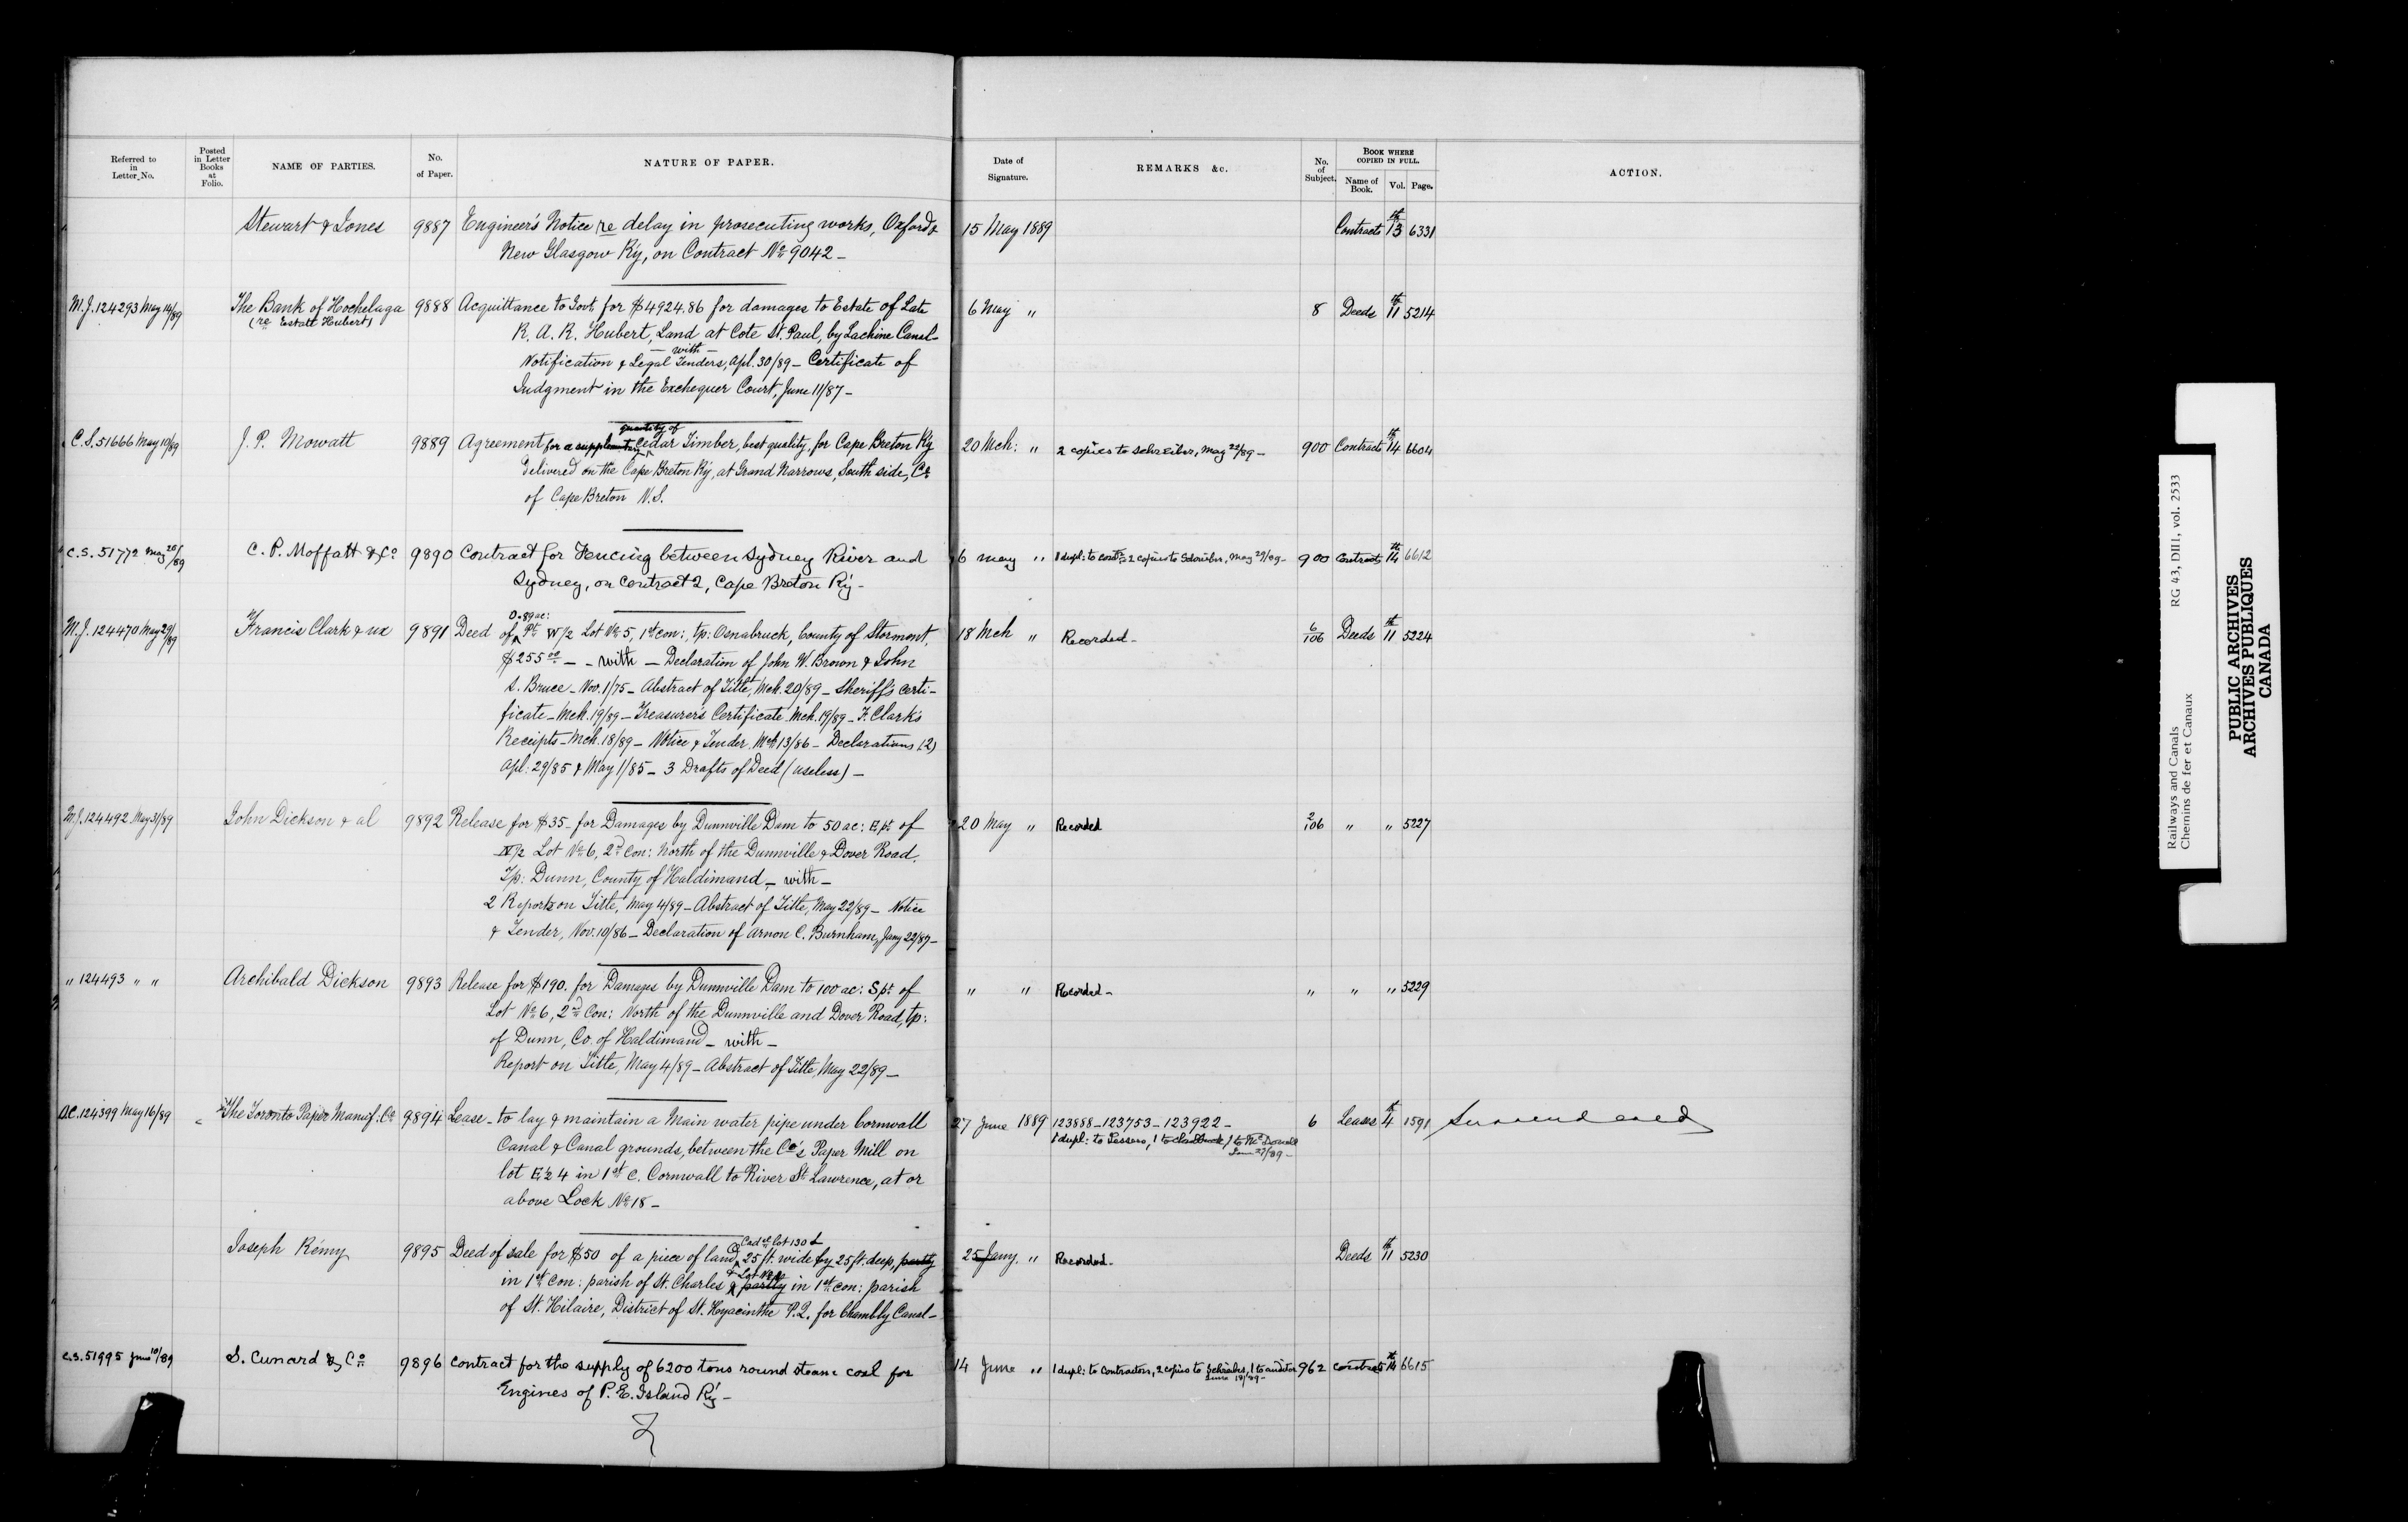 Referred to in Letter No.
Posted in Letter Books at Folio.
NAME OF PARTIES.
No. of Paper.
NATURE OF PAPER.
Date of Signature.
REMARKS &c.
No. of Subject.
BOOK WHERE COPIED IN FULL.
Name of Book.
Vol.
Page.
ACTION.
Stewart & Jones 9887 Engineer's Notice re delay in prosecuting works, Oxford & 15 May 1889 Contracts 13th 6331
New Glasgow Ry, on Contract No 9042 -
M.J. 124293 May 14/89 The Bank of Hochelaga 9888 Acquittance to Govt. for $4924.86 for damages to Estate of Late 6 May " 8 Deeds 11th 5214
(re Estate Hubert)
R. A. R. Hubert, Land at Cote St. Paul, by Lachine Canal -
- with -
Notification & Legal Tenders, Apl. 30/89 - Certificate of
Judgment in the Exchequer Court, June 11/87 -
C.S. 51666 May 10/89 J. P. Mowatt 9889 Agreement for a quantity of Cedar Timber, best quality, for Cape Breton Ry 20 Mch: " 2 copies to Schreiber, May 22/89 - 900 Contracts 14th 6604
delivered on the Cape Breton Ry, at Grand Narrows, South side, Co
of Cape Breton N.S.
C.S. 51772 May 20/89 C. P. Moffatt & Co 9890 Contract for Fencing between Sydney River and 6 May " 1 dupl: to contr 2 copies to Schreiber, May 29/89 - 900 Contracts 14th 6612
Sydney, on Contract 2, Cape Breton Ry -
0.89 ac:
M.J. 124470 May 29/89 Francis Clark & ux 9891 Deed of Pt W 1/2 Lot No 5, 1st con:, tp: Osnabruck, County of Stormont, 18 Mch " Recorded - 6/106 Deeds 11th 5224
$255 00 - - with - Declaration of John W. Brown & John
S. Bruce - Nov. 1/75 - Abstract of Title, Mch. 20/89 - Sheriff's certi-
ficate - Mch. 19/89 - Treasurer's Certificate Mch. 19/89 - F. Clark's
Receipts - Mch. 18/89 - Notice & Tender Mch 13/86 - Declarations (2)
Apl: 29/85 & May 1/85 - 3 Drafts of Deed (useless) -
M.J. 124492 May 31/89 John Dickson & al 9892 Release for $35 - for Damages by Dunnville Dam to 50 ac: E. pt of 20 May " Recorded 2/106 " " 5227
N 1/2 Lot No 6, 2nd Con: North of the Dunnville & Dover Road,
T/p: Dunn, County of Haldimand - with -
2 Reports on Title, May 4/89 - Abstract of Title, May 22/89 - Notice
& Tender, Nov. 10/86 - Declaration of Arnon C. Burnham, Jany 22/87 -
" 124493 " " Archibald Dickson 9893 Release for $190. for Damages by Dunnville Dam to 100 ac: S pt of " " Recorded - " " " 5229
Lot No 6, 2nd Con: North of the Dunnville and Dover Road, tp:
of Dunn, Co. of Haldimand - with -
Report on Title, May 4/89 - Abstract of Title, May 22/89 -
A.C. 124399 May 16/89 The Toronto Paper Manuf. Co 9894 Lease - to lay & maintain a Main water pipe under Cornwall 27 June 1889 123888 - 123753 - 123922 - 6 Leases 4th 1591 Surrendered
Canal & Canal grounds, between the Co's Paper Mill on 1 dupl: to Lessees, 1 to McDonell
June 27/89 -
lot E 1/2 4 in 1st C. Cornwall to River St Lawrence, at or
above Lock No 18 -
Cad l lot 130 &
Joseph Rémy 9895 Deed of sale for $50 of a piece of land, 25 ft. wide by 25 ft. deep, partly 25 Jany. " Recorded - Deeds 11th 5230
in 1st Con: parish of St. Charles & partly in 1st con: parish
of St. Hilaire, District of St. Hyacinthe P.Q. for Chambly Canal -
C.S. 51995 June 10/89 S. Cunard & Co 9896 Contract for the supply of 6200 tons round steam coal for 14 June " 1 dupl: to Contractors, 2 copies to Schreiber, 1 to auditor 962 Contracts 14th 6615
June 18/89 -
Engines of P. E. Island Ry -
Railways and Canals RG 43, DIII, vol. 2533
Chemins de fer et Canaux
PUBLIC ARCHIVES
ARCHIVES PUBLIQUES
CANADA